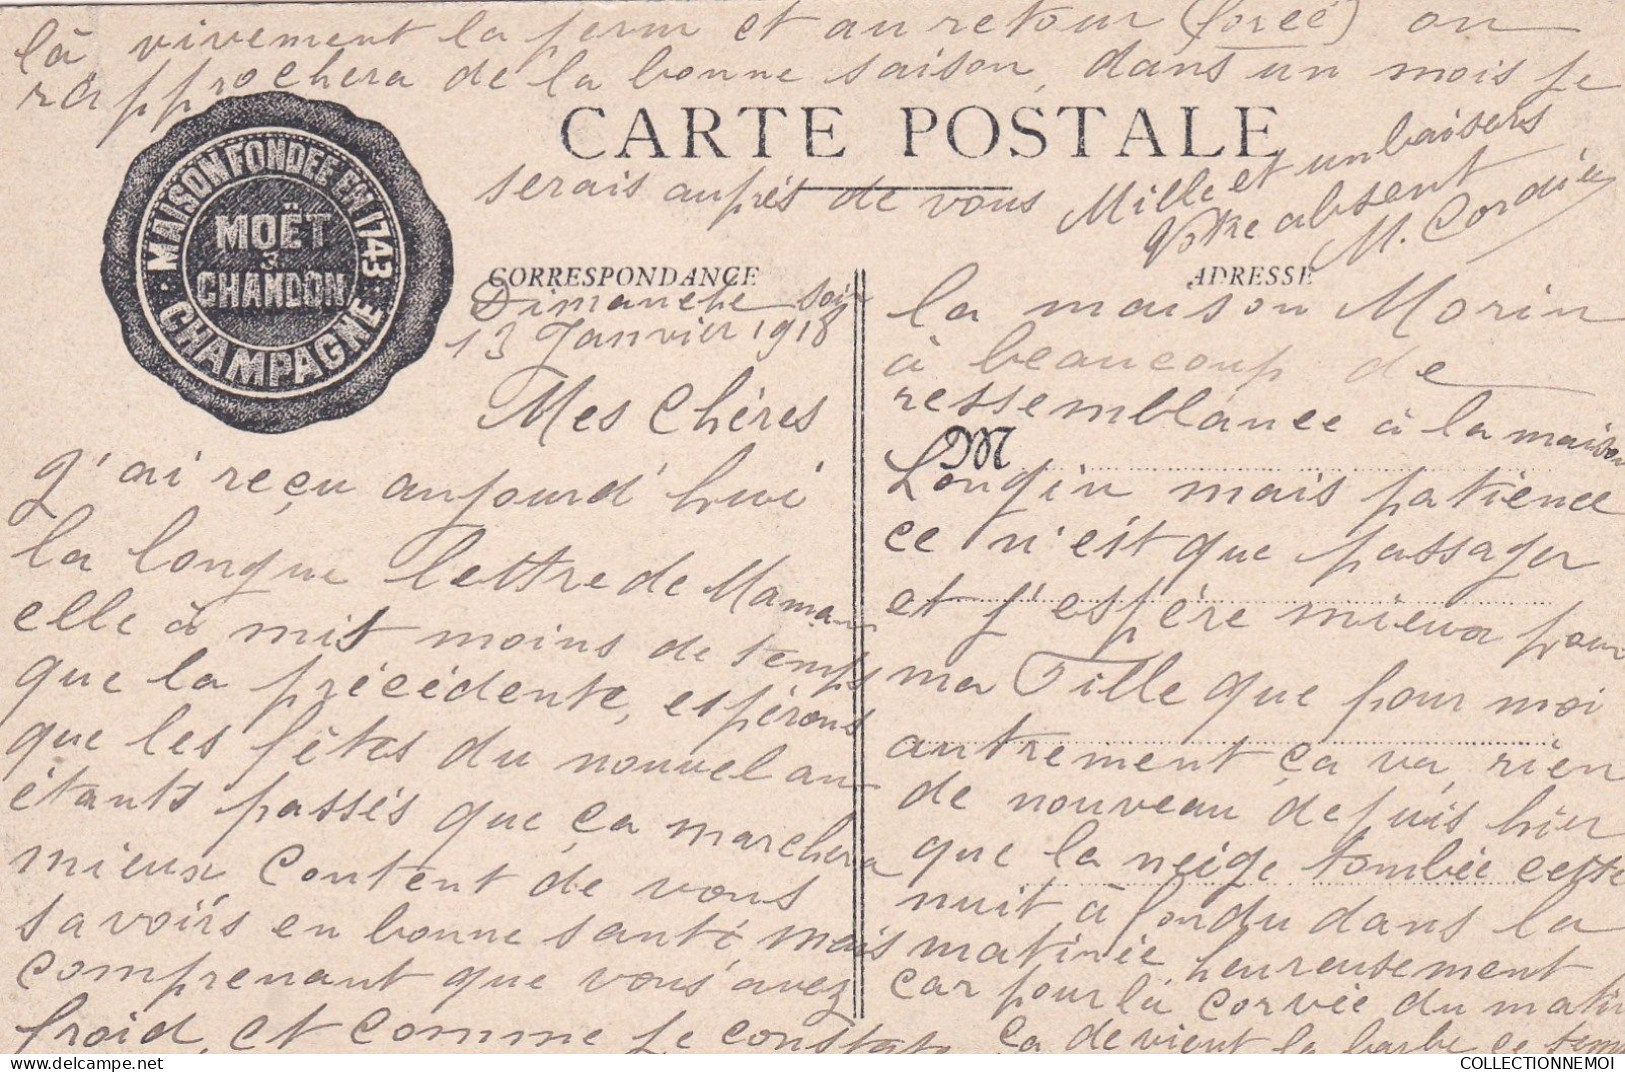 là vivement la perm et au retour (forcé) on
rapprochera de la bonne saison, dans un mois je
CARTE POSTALE
serais auprès de vous Mille et un baisers
Votre absent
M. Cordier
MAISON FONDÉE EN 1743
MOËT
&
CHANDON
CHAMPAGNE
CORRESPONDANCE
Dimanche soir
13 Janvier 1918
Mes Chères
J'ai reçu aujourd'hui
la longue lettre de Maman
elle à mist moins de temps
que la précédente, espérons
que les fêtes du nouvel an
étants passés que ça marchera
mieux, Content de vous
savoirs en bonne santé, mais
comprenant que vous avez
froid, et comme je constate
ADRESSE
la maison Morin
à beaucoup de
ressemblance à la maison
M
Longin mais patience
ce n'est que passager
et j'espère mieux pour
ma Fille que pour moi
autrement ça va, rien
de nouveau depuis hier
que la neige tombée cette
nuit à fondu dans la
matinée, heureusement
car pour la corvée du matin
ça devient la barbe ce temps
COLLECTIONNEMOI